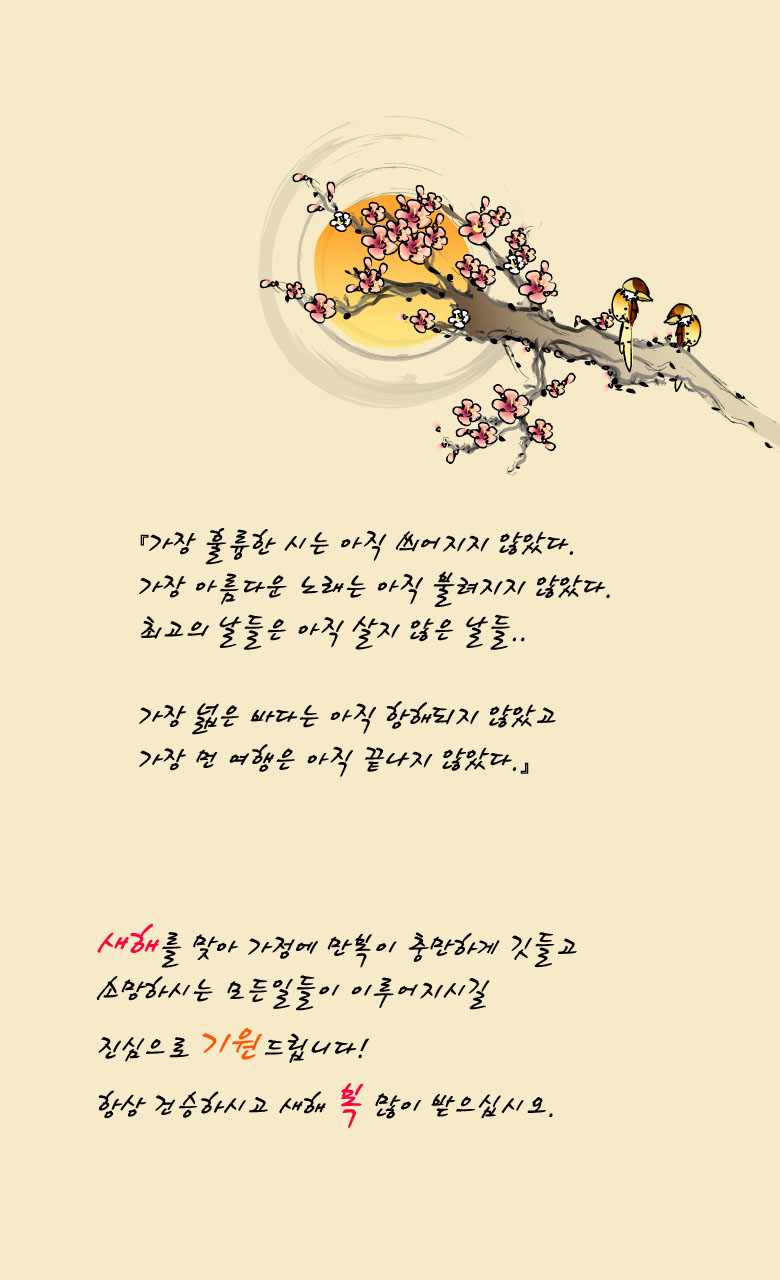 『가장 훌륭한 시는 아직 씌어지지 않았다.
가장 아름다운 노래는 아직 불려지지 않았다.
최고의 날들은 아직 살지 않은 날들..
가장 넓은 바다는 아직 항해되지 않았고
가장 먼 여행은 아직 끝나지 않았다.』
새해를 맞아 가정에 만복이 충만하게 깃들고
소망하시는 모든일들이 이루어지시길
진심으로 기원드립니다!
항상 건승하시고 새해 복 많이 받으십시오.